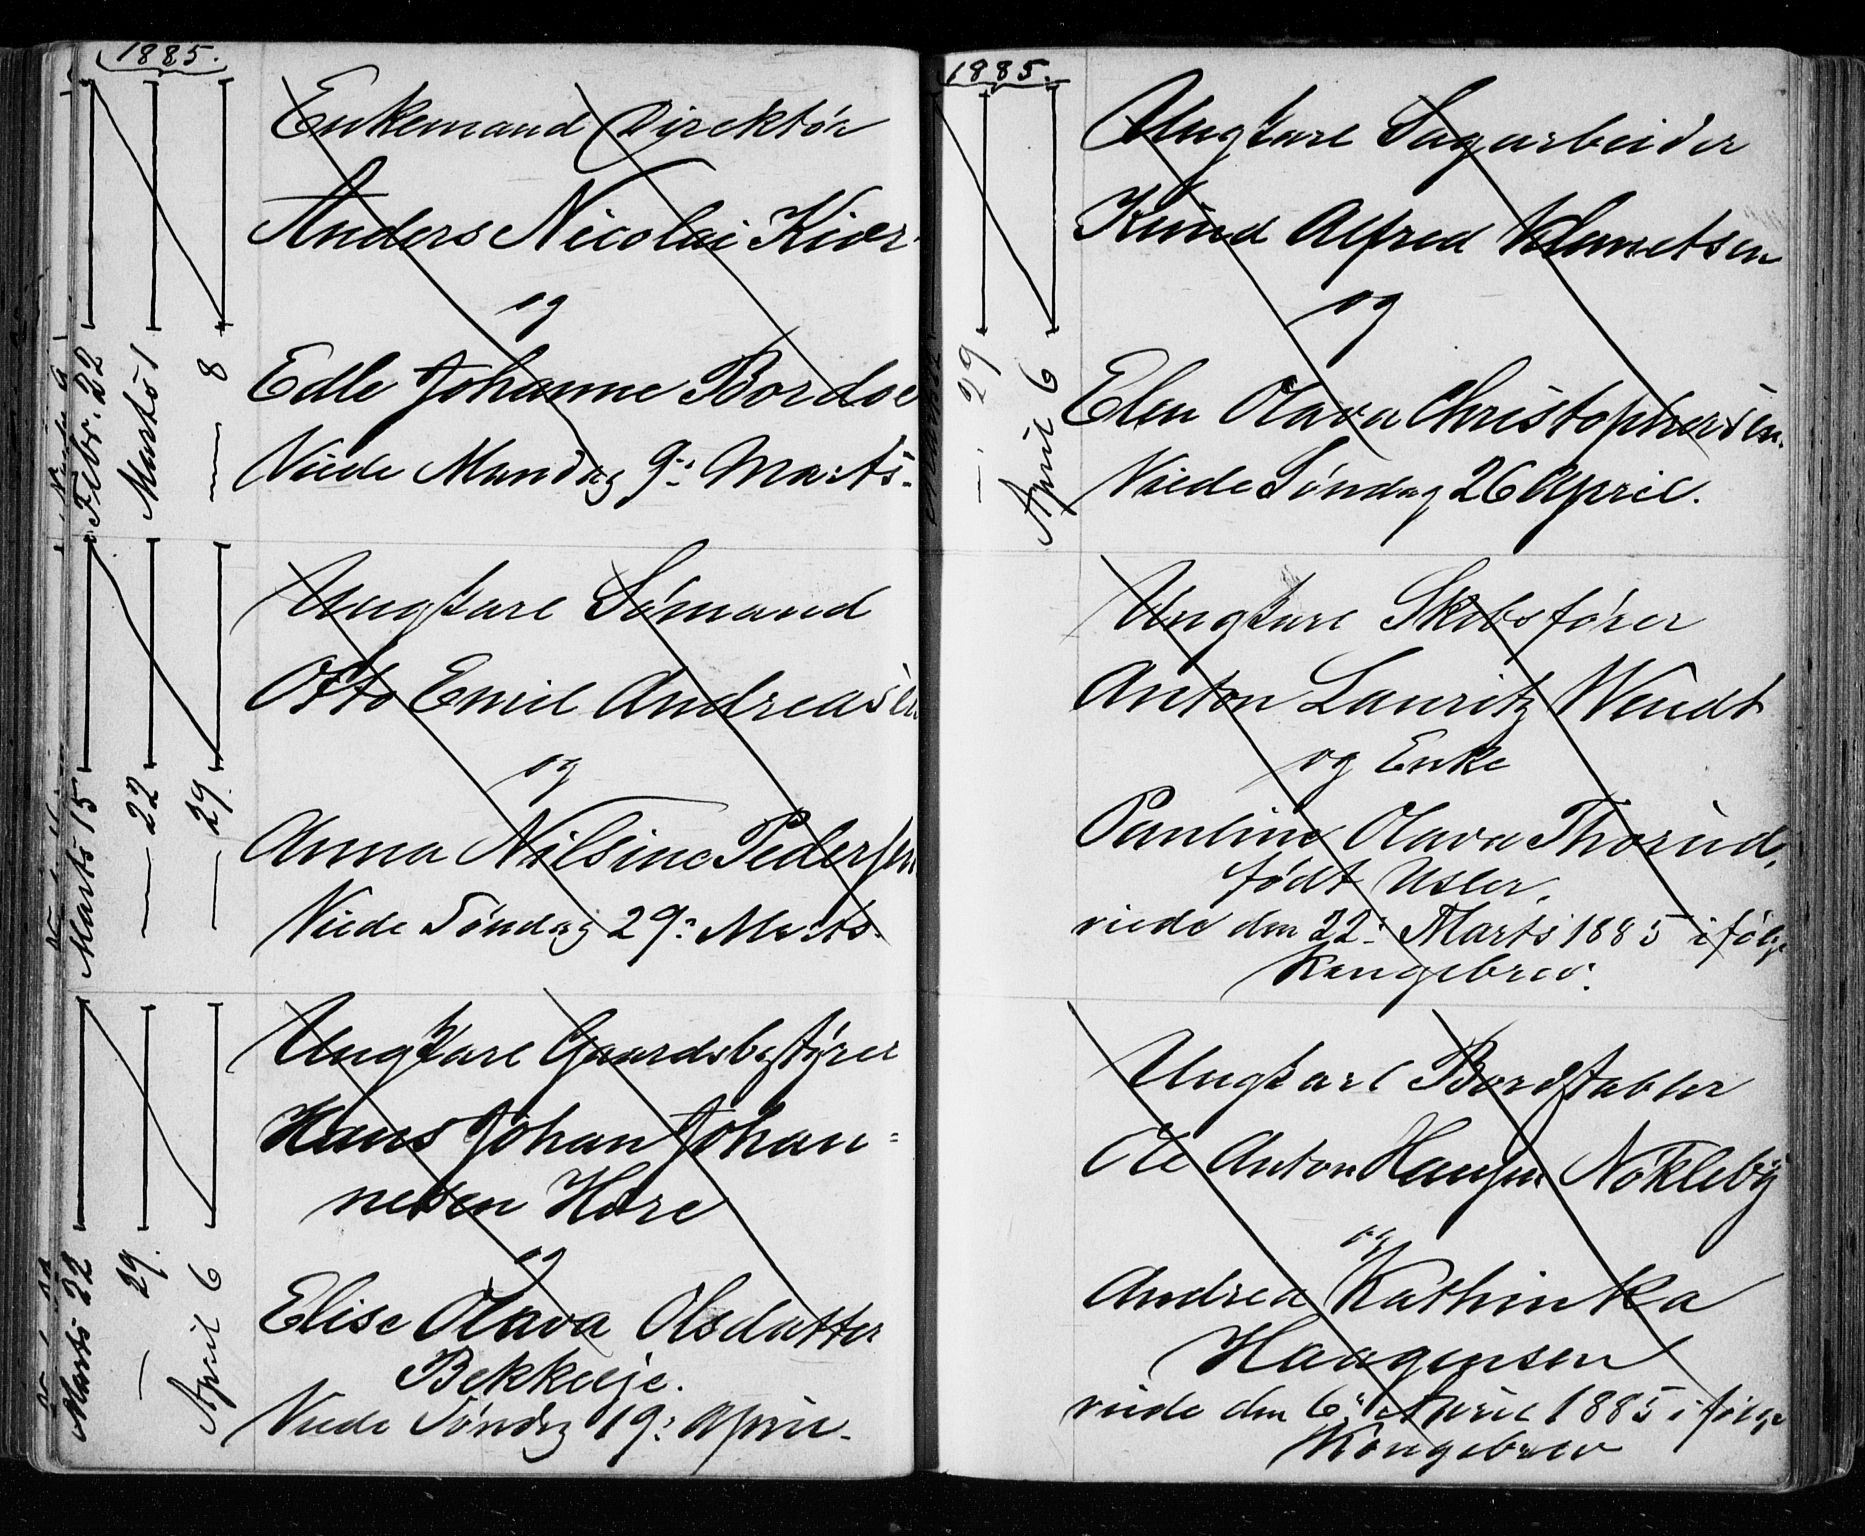 1885.
Febr. 22
Marts 1
— 8
Enkemand Direktör
Anders Nicolai Kiær
og
Edle Johanne Bordoe
Viede Mandag 9: Marts.
Marts 15
— 22
— 29.
Ungkarl Sømand
Otto Emil Andreasen
og
Anna Nilsine Pedersen
Viede Søndag 29: Marts.
Marts 22
— 29.
April 6
Ungkarl Gaardsbestyrer
Hans Johan Johan=
nesen Hore
og
Elise Olava Olsdatter
Viede Søndag 19: April.
1885.
— 29
April 6
Ungkarl Sagarbeider
Knud Alfred Klemetsen
og
Elen Olava Christophersen.
Viede Søndag 26 April.
Ungkarl Skibsfører
Anton Lauritz Wendt
og Enke
Pauline Olava Thorud,
født Usler,
viede den 22: Marts 1885 ifølge
Kongebrev.
Ungkarl Bordstabler
Ole Anton Hansen Nökleby
og
Andrea Kathinka
Haagensen
viede den 6: April 1885 ifølge
Kongebrev